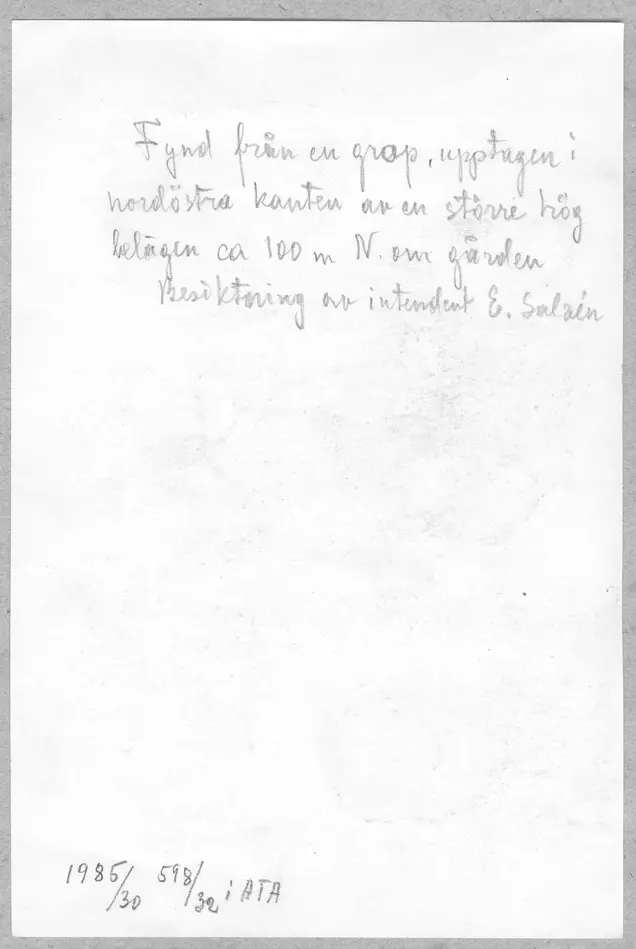 Fynd från en grop, upptagen i
nordöstra kanten av en större hög
belägen ca 100 m N. om gården
Besiktning av intendent E. Salvén
1985/30 598/32 i ATA